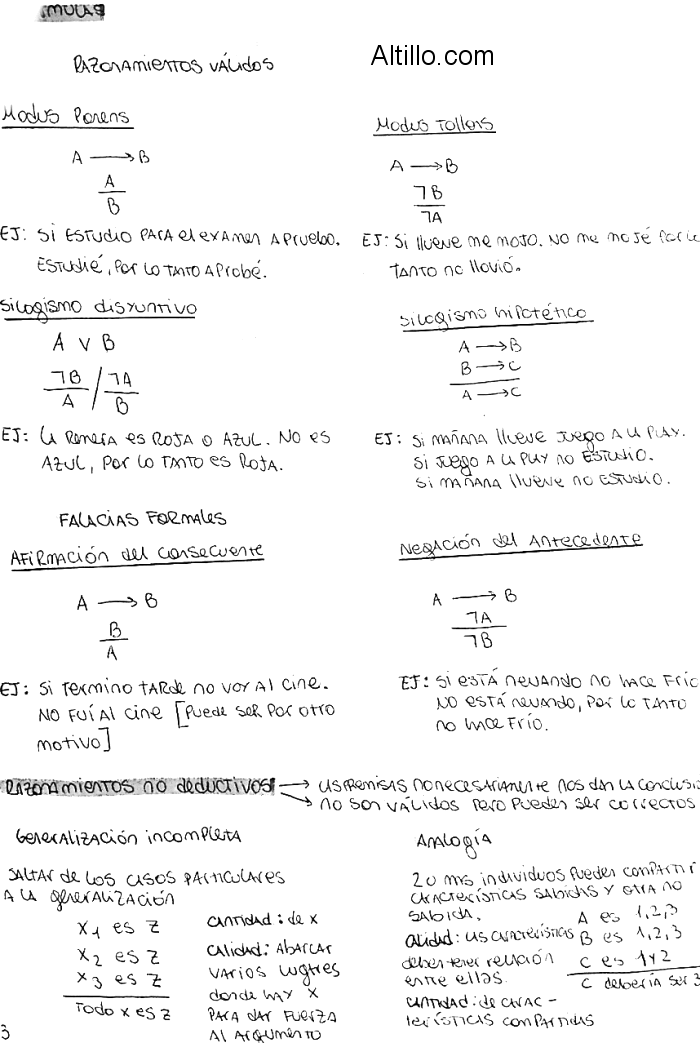 Altillo.com
RAZONAMIENTOS VÁLIDOS
Modus Ponens
A → B
A
B
EJ: Si ESTUDIO PARA el examen APruebo.
ESTUDIÉ, POR LO TANTO APROBÉ.
Modus Tollens
A → B
¬B
¬A
EJ: Si llueve me mojo. No me mojé por lo
TANTO no llovió.
Silogismo disyuntivo
A v B
¬B / ¬A
A / B
EJ: La Remera es Roja o AZUL. No es
AZUL, Por lo TANTO es Roja.
Silogismo hipotético
A → B
B → C
A → C
EJ: Si MAÑANA llueve Juego A LA PLAY.
Si Juego A LA PLAY no ESTUDIO.
Si MAÑANA llueve no ESTUDIO.
FALACIAS FORMALES
AFIRMACIÓN del consecuente
A → B
B
A
EJ: Si Termino TARDE no voy Al cine.
NO FUÍ Al cine [Puede ser Por otro
motivo]
Negación del Antecedente
A → B
¬A
¬B
EJ: Si ESTÁ nevando no hace Frío
NO ESTÁ nevando, Por lo TANTO
no hace Frío.
RAZONAMIENTOS no deductivos → LAS PREMISAS no necesariamente nos dan la conclusió
→ no son VÁLIDOS Pero Pueden ser correctos
Generalización incompleta
SALTAR de los casos PARTICULARES
A LA generalización
X1 es Z
X2 es Z
X3 es Z
Todo x es Z
CANTIDAD: de X
CALIDAD: ABARCAR
VARIOS lugares
donde hay X
PARA dar FUERZA
Al ARGUMENTO
Analogía
2 o más individuos Pueden compartir
características sabidas y otra no
sabida.
CALIDAD: las características
deben tener relación
entre ellas.
CANTIDAD: de carac-
terísticas compartidas
A es 1,2,3
B es 1,2,3
C es 1 y 2
C debería ser 3
3